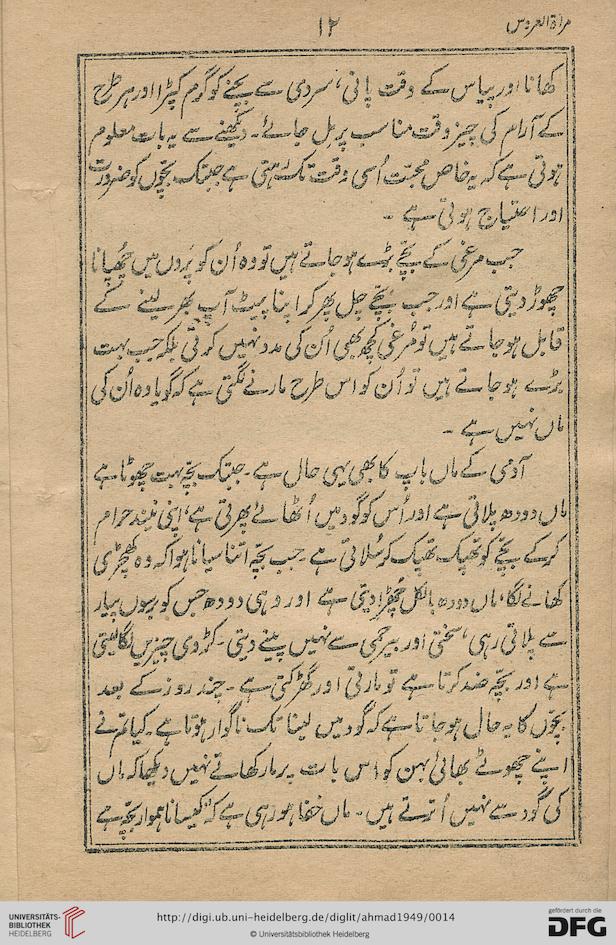 مراۃ العروس
۱۲
کھانا اور پیاس کے وقت پانی، سردی سے بچنے کو گرم کپڑا اور ہر طرح
کے آرام کی چیز وقت مناسب پر مل جائے۔ دیکھنے سے یہ بات معلوم
ہوتی ہے کہ یہ خاص محبت اُسی وقت تک رہتی ہے جبتک بچّوں کو ضرورت
اور احتیاج ہوتی ہے ۔
جب مرغی کے بچّے بڑے ہو جاتے ہیں تو وہ اُن کو پروں میں چھپانا
چھوڑ دیتی ہے اور جب بچّے چل پھر کر اپنا پیٹ آپ بھر لینے کے
قابل ہو جاتے ہیں تو مُرغی کچھ بھی اُن کی مدد نہیں کرتی بلکہ جب بہت
بڑے ہو جاتے ہیں تو اُن کو اس طرح مارنے لگتی ہے کہ گویا وہ اُن کی
ماں نہیں ہے ۔
آدمی کے ماں باپ کا بھی یہی حال ہے ۔ جبتک بچّہ بہت چھوٹا ہے
ماں دودھ پلاتی ہے اور اُس کو گود میں اُٹھائے پھرتی ہے، اپنی نیند حرام
کر کے بچّے کو تھپک تھپک کر سُلاتی ہے ۔ جب بچّہ اتنا سیانا ہوا کہ وہ کھچڑی
کھانے لگا، ماں دودھ بالکل چُھڑا دیتی ہے اور وہی دودھ جس کو برسوں پیار
سے پلاتی رہی، سختی اور بیرحمی سے نہیں پینے دیتی ۔ کڑوی چیزیں لگا لیتی
ہے اور بچّہ ضد کرتا ہے تو مارتی اور گھڑکتی ہے ۔ چند روز کے بعد
بچّوں کا یہ حال ہو جاتا ہے کہ گود میں لینا تک ناگوار ہوتا ہے ۔ کیا تم نے
اپنے چھوٹے بھائی بہن کو اس بات پر مار کھاتے نہیں دیکھا کہ ماں
کی گود سے نہیں اُترتے ہیں ۔ ماں خفا ہو رہی ہے کہ کیسا ناہموار بچّہ ہے
UNIVERSITÄTS-
BIBLIOTHEK
HEIDELBERG
http://digi.ub.uni-heidelberg.de/diglit/ahmad1949/0014
© Universitätsbibliothek Heidelberg
gefördert durch die
DFG